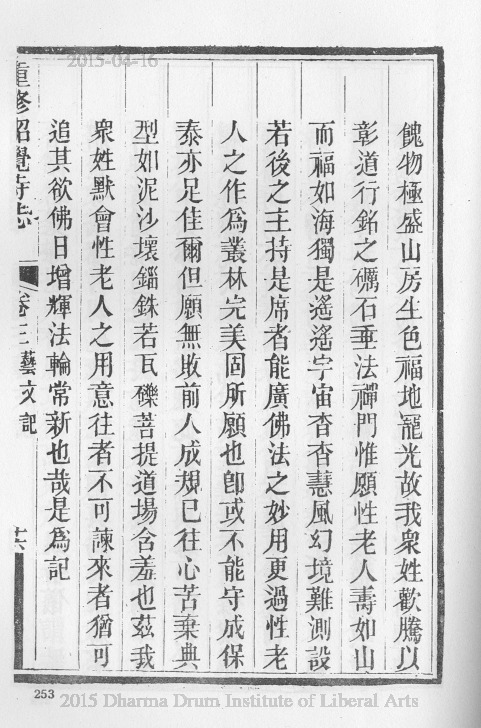 2015-04-16
餽物極盛山房生色福地寵光故我眾姓歡騰以
彰道行銘之礪石垂法禪門惟願性老人壽如山
而福如海獨是遙遙宇宙杳杳慧風幻境難測設
若後之主持是席者能廣佛法之妙用更過性老
人之作為叢林完美固所願也卽或不能守成保
泰亦足佳爾但願無敗前人成規已往心苦棄典
型如泥沙壞錙銖若瓦礫菩提道場含羞也茲我
眾姓默會性老人之用意往者不可諫來者猶可
追其欲佛日增輝法輪常新也哉是為記
重修昭覺寺志 卷三 藝文 記 六
253
2015 Dharma Drum Institute of Liberal Arts